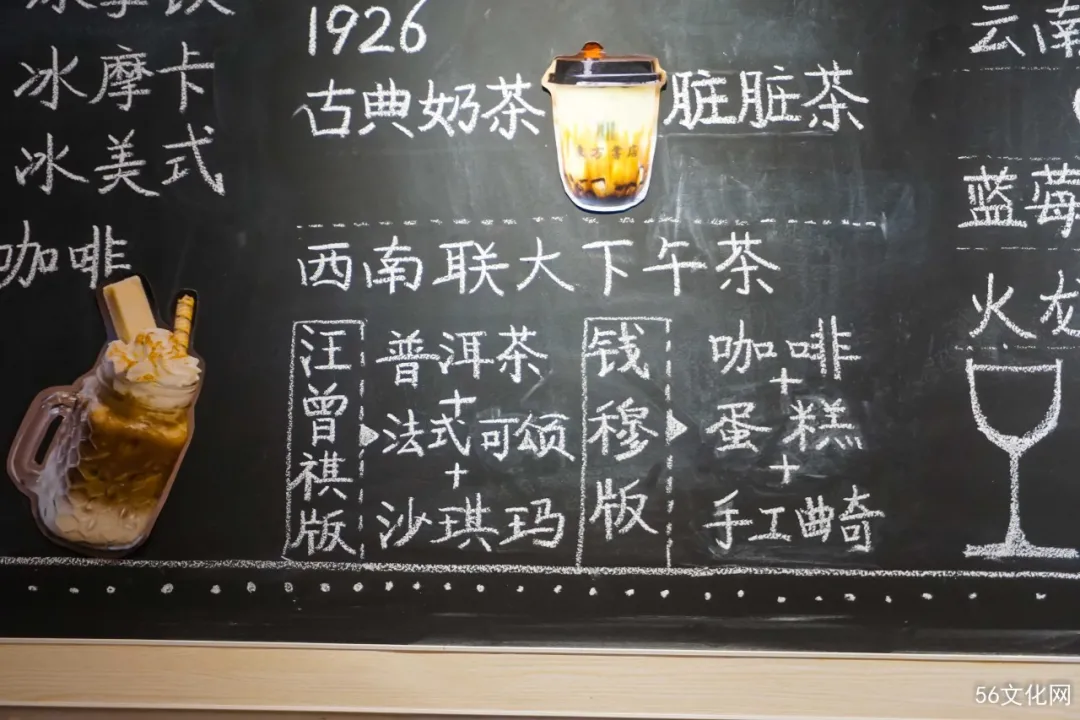 冰摩卡
冰美式
咖啡
1926
古典奶茶
脏脏茶
西南联大下午茶
汪曾祺版
普洱茶
+
法式可颂
+
沙琪玛
钱穆版
咖啡
+
蛋糕
+
手工曲奇
云南
蓝莓
火龙
56文化网